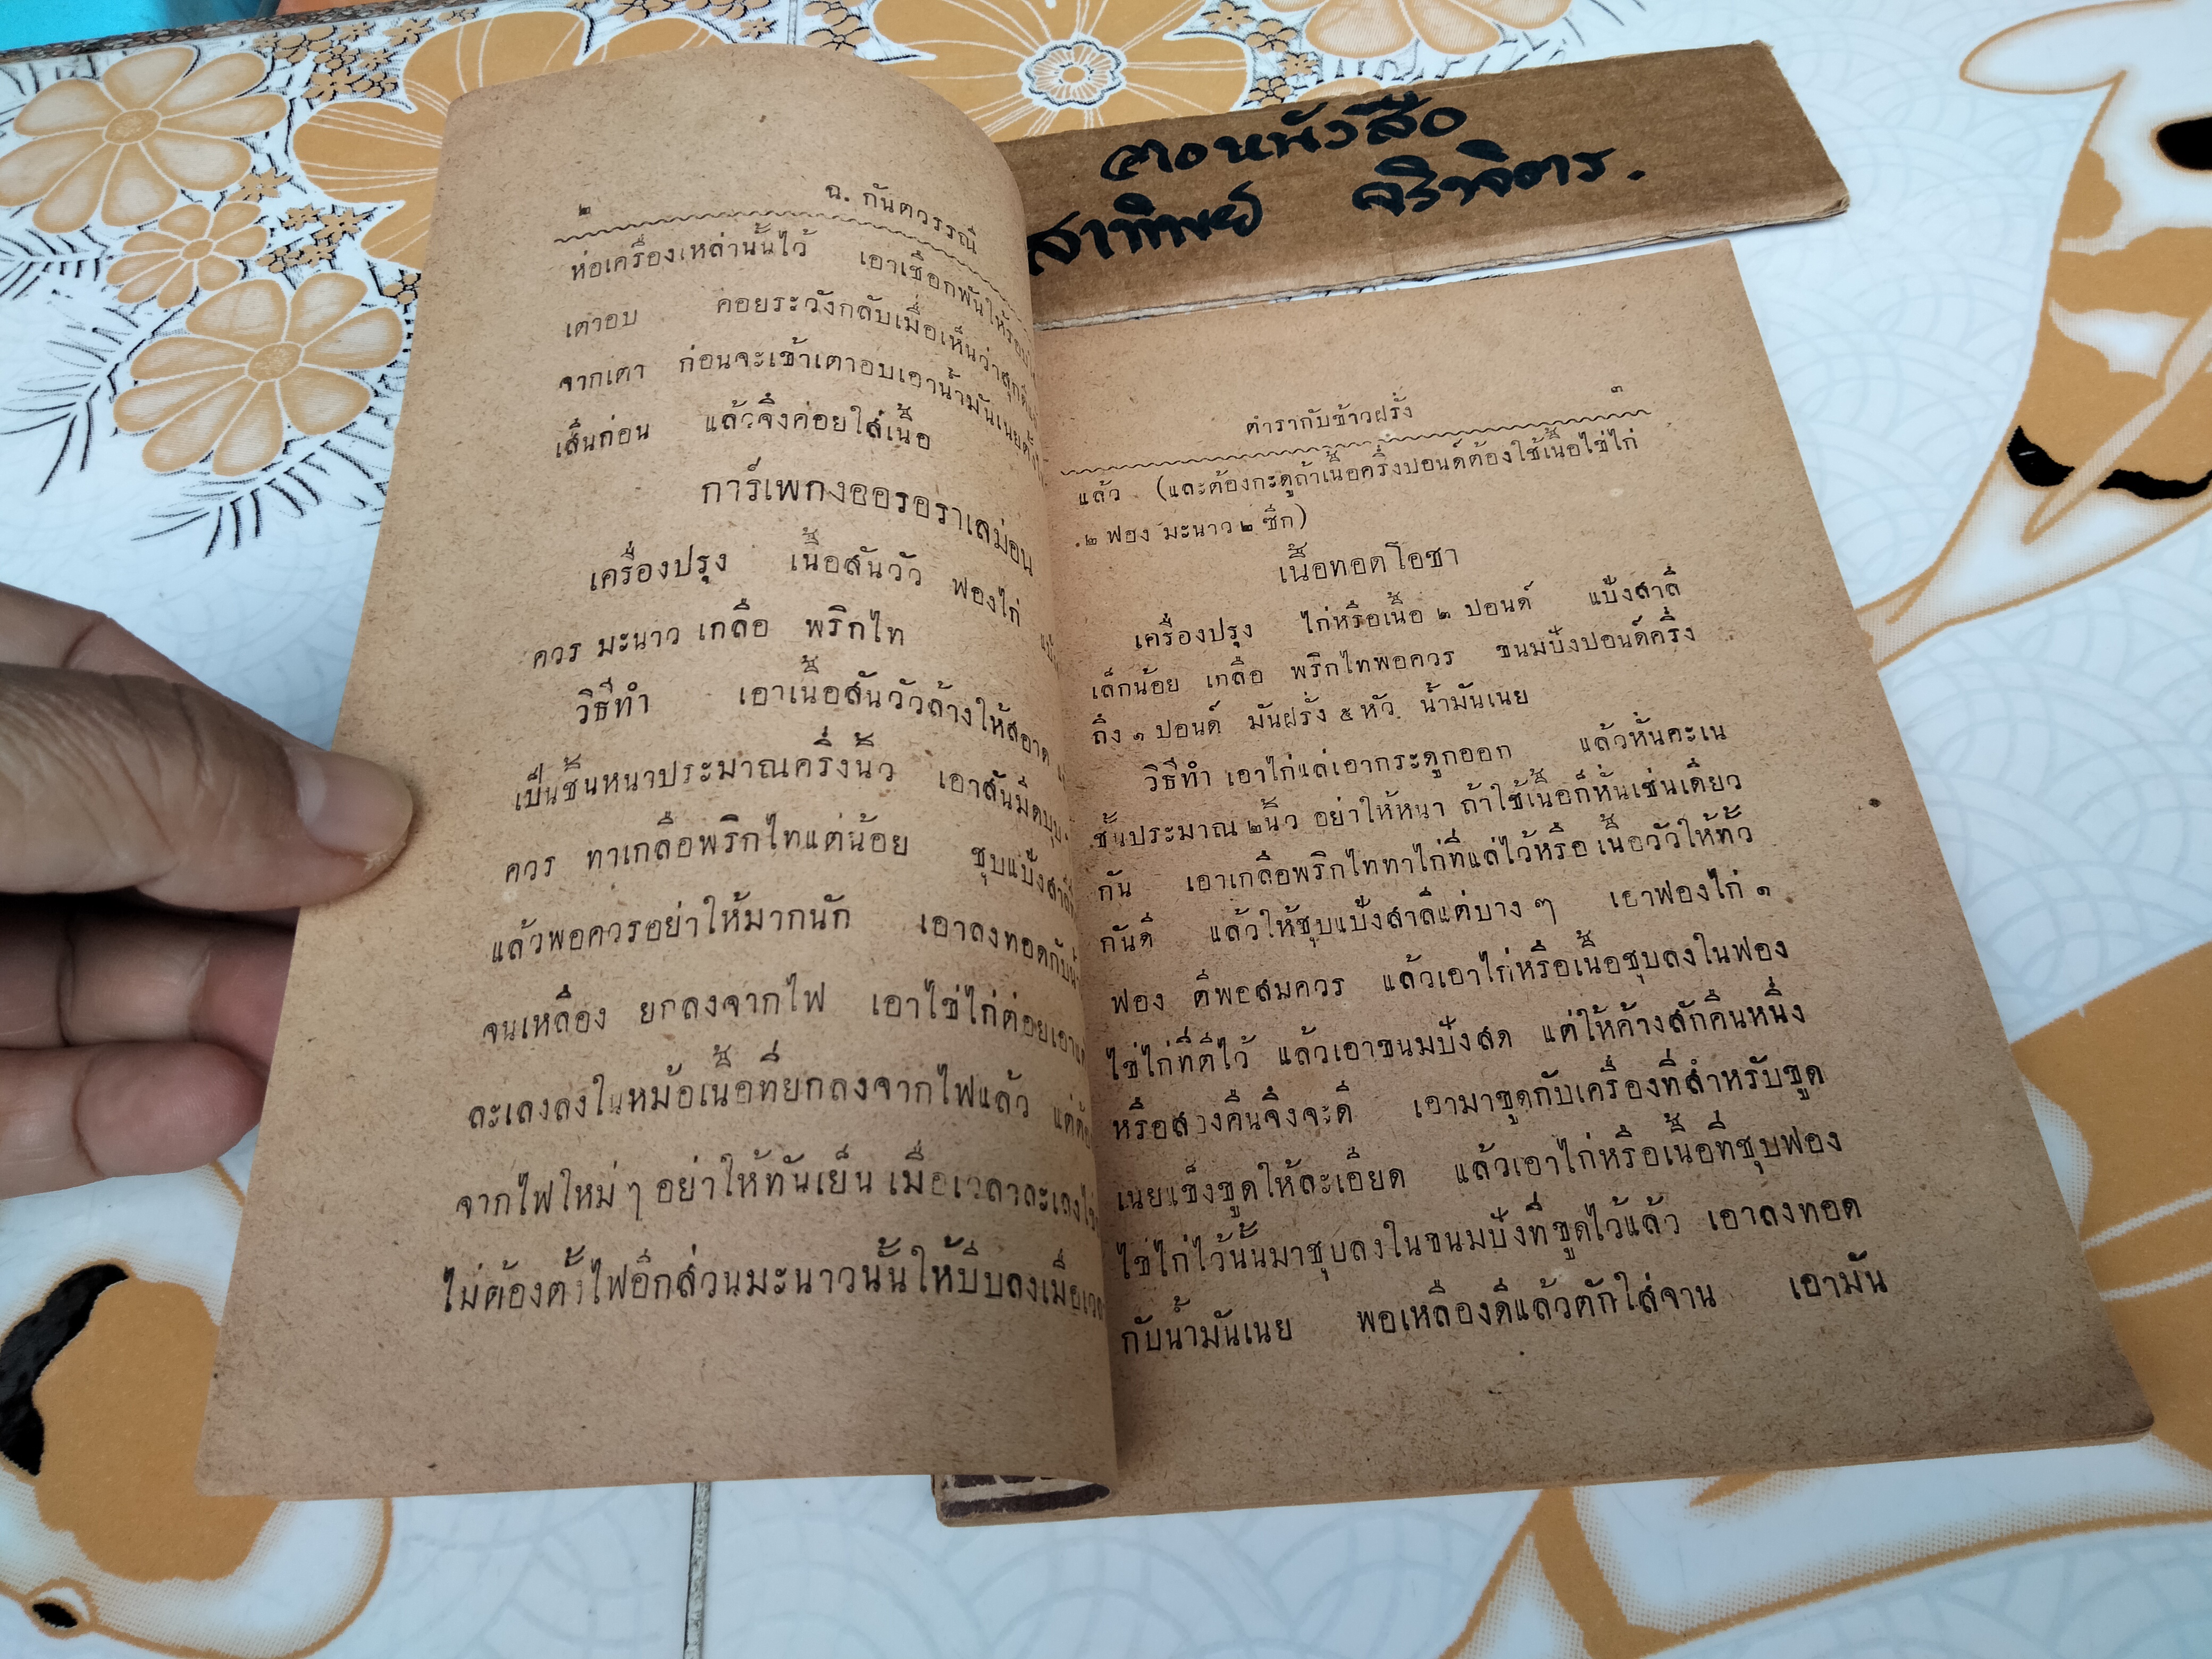 หนังสือ
สาทิพย์
๒ ฉ. กันตวรรณี
ห่อเครื่องเหล่านั้นไว้ เอาเชือกพันให้รอบ
เตาอบ คอยระวังกลับเมื่อเห็นว่าสุก
จากเตา ก่อนจะเข้าเตาอบเอาน้ำมันเนย
เส็นก่อน แล้วจึงค่อยใส่เนื้อ
การ์เพกงออรอราเลม่อน
เครื่องปรุง เนื้อสันวัว ฟองไก่
ควร มะนาว เกลือ พริกไท
วิธีทำ เอาเนื้อสันวัวล้างให้สอาด
เป็นชิ้นหนาประมาณครึ่งนิ้ว เอาสันมีดบุบ
ควร ทาเกลือพริกไทแต่น้อย ชุบแป้งสาลี
แล้วพอควรอย่าให้มากนัก เอาลงทอดกับ
จนเหลือง ยกลงจากไฟ เอาไข่ไก่ต่อยเอา
ละเลงลงในหม้อเนื้อที่ยกลงจากไฟแล้ว
จากไฟใหม่ ๆ อย่าให้ทันเย็น เมื่อเวลาละเลง
ไม่ต้องตั้งไฟอีกส่วนมะนาวนั้นให้บีบลงเมื่อ
ตำรากับข้าวฝรั่ง ๓
แล้ว (และต้องกะดูถ้าเนื้อครึ่งปอนด์ต้องใช้เนื้อไข่ไก่
๒ ฟอง มะนาว ๒ ซีก)
เนื้อทอดโอชา
เครื่องปรุง ไก่หรือเนื้อ ๒ ปอนด์ แป้งสาลี
เล็กน้อย เกลือ พริกไทพอควร ขนมปังปอนด์ครึ่ง
ถึง ๑ ปอนด์ มันฝรั่ง ๕ หัว น้ำมันเนย
วิธีทำ เอาไก่แล่เอากระดูกออก แล้วหั่นคะเน
ชิ้นประมาณ ๒นิ้ว อย่าให้หนา ถ้าใช้เนื้อก็หั่นเช่นเดียว
กัน เอาเกลือพริกไททาไก่ที่แล่ไว้หรือ เนื้อวัวให้ทั่ว
กันดี แล้วให้ชุบแป้งสาลีแต่บาง ๆ เอาฟองไก่ ๑
ฟอง ตีพอสมควร แล้วเอาไก่หรือเนื้อชุบลงในฟอง
ไข่ไก่ที่ตีไว้ แล้วเอาขนมปังสด แต่ให้ค้างสักคืนหนึ่ง
หรือสองคืนจึงจะดี เอามาขูดกับเครื่องที่สำหรับขูด
เนยแข็งขูดให้ละเอียด แล้วเอาไก่หรือเนื้อที่ชุบฟอง
ไข่ไก่ไว้นั้นมาชุบลงในขนมปังที่ขูดไว้แล้ว เอาลงทอด
กับน้ำมันเนย พอเหลืองดีแล้วตักใส่จาน เอามัน